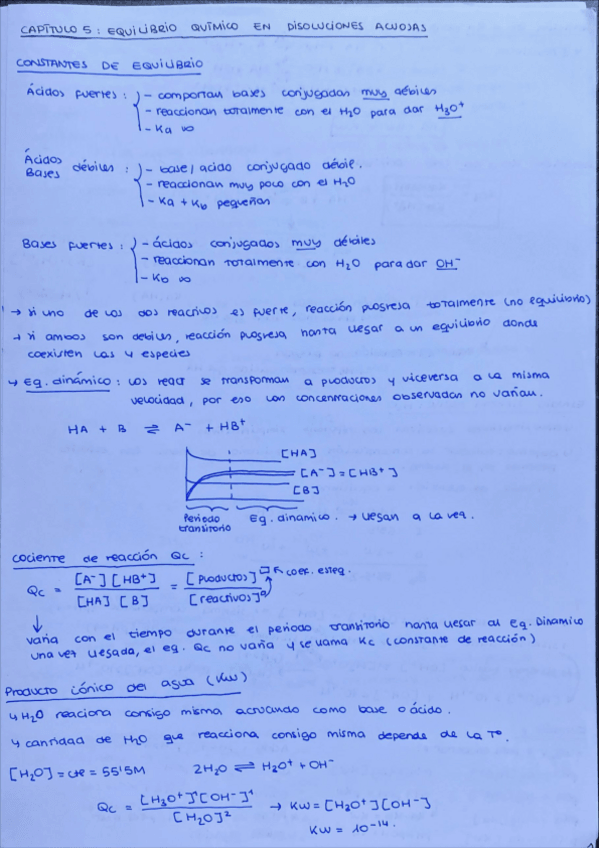 CAPÍTULO 5: EQUILIBRIO QUÍMICO EN DISOLUCIONES ACUOSAS
CONSTANTES DE EQUILIBRIO
Ácidos fuertes: - comportan bases conjugadas muy débiles
- reaccionan totalmente con el H2O para dar H3O+
- Ka ∞
Ácidos
Bases débiles: - base/acido conjugado débil.
- reaccionan muy poco con el H2O
- Ka + Kb pequeñas
Bases fuertes: - ácidos conjugados muy débiles
- reaccionan totalmente con H2O para dar OH-
- Kb ∞
→ si uno de los dos reactivos es fuerte, reacción progresa totalmente (no equilibrio)
→ si ambos son debiles, reacción progresa hasta llegar a un equilibrio donde
coexisten las 4 especies
↳ Eq. dinámico: los react se transforman a productos y viceversa a la misma
velocidad, por eso las concentraciones observadas no varían.
HA + B ⇌ A- + HB+
[HA]
[A-] = [HB+]
[B]
Periodo transitorio
Eq. dinamico. → llegan a la vez.
cociente de reacción Qc:
Qc = [A-] [HB+] / [HA] [B] = [productos] / [reactivos]a coef. esteq.
varia con el tiempo durante el periodo transitorio hasta llegar al Eq. Dinamico
una vez llegada, el eq. Qc no varía y se llama Kc (constante de reacción)
Producto iónico del agua (Kw)
↳ H2O reacciona consigo misma actuando como base o ácido.
↳ cantidad de H2O que reacciona consigo misma depende de la Tª.
[H2O] = cte = 55'5M 2H2O ⇌ H3O+ + OH-
Qc = [H3O+]1 [OH-]1 / [H2O]2 → Kw = [H3O+] [OH-]
Kw = 10-14.